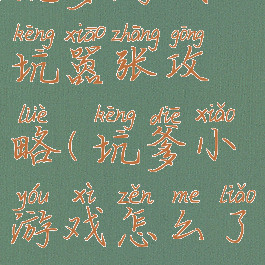 kēng xiāo zhāng gōng
坑嚣张攻
lüè ( kēng diē xiǎo
略(坑爹小
yóu xì zěn me liǎo
游戏怎么了